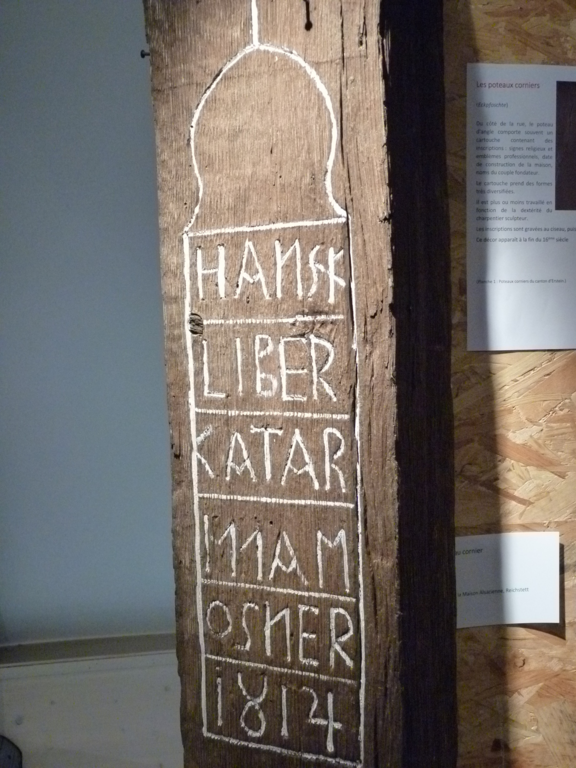 HANSK
LIBER
KATAR
INAM
OSNER
1814
Les poteaux corniers
(Eckpfoschte)
Du côté de la rue, le poteau
d'angle comporte souvent un
cartouche contenant des
inscriptions : signes religieux et
emblèmes professionnels, date
de construction de la maison,
noms du couple fondateur.
Le cartouche prend des formes
très diversifiées.
Il est plus ou moins travaillé en
fonction de la dextérité du
charpentier sculpteur.
Les inscriptions sont gravées au ciseau,
Ce décor apparaît à la fin du 16ème siècle
cornier
Maison Alsacienne, Reichstett